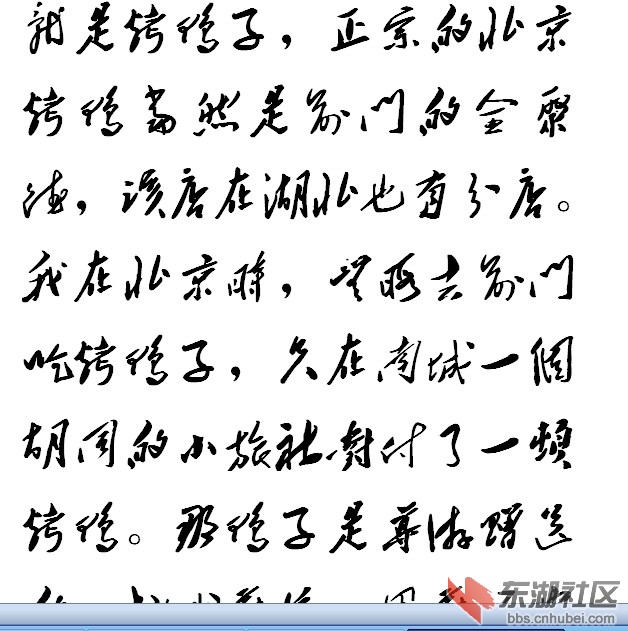 就是烤鴨子，正宗的北京
烤鴨當然是前門的全聚
德，該店在湖北也有分店。
我在北京時，無暇去前門
吃烤鴨子，只在南城一個
胡同的小旅社對付了一頓
烤鴨。那鴨子是導游贈送
东湖社区
bbs.cnhubei.com